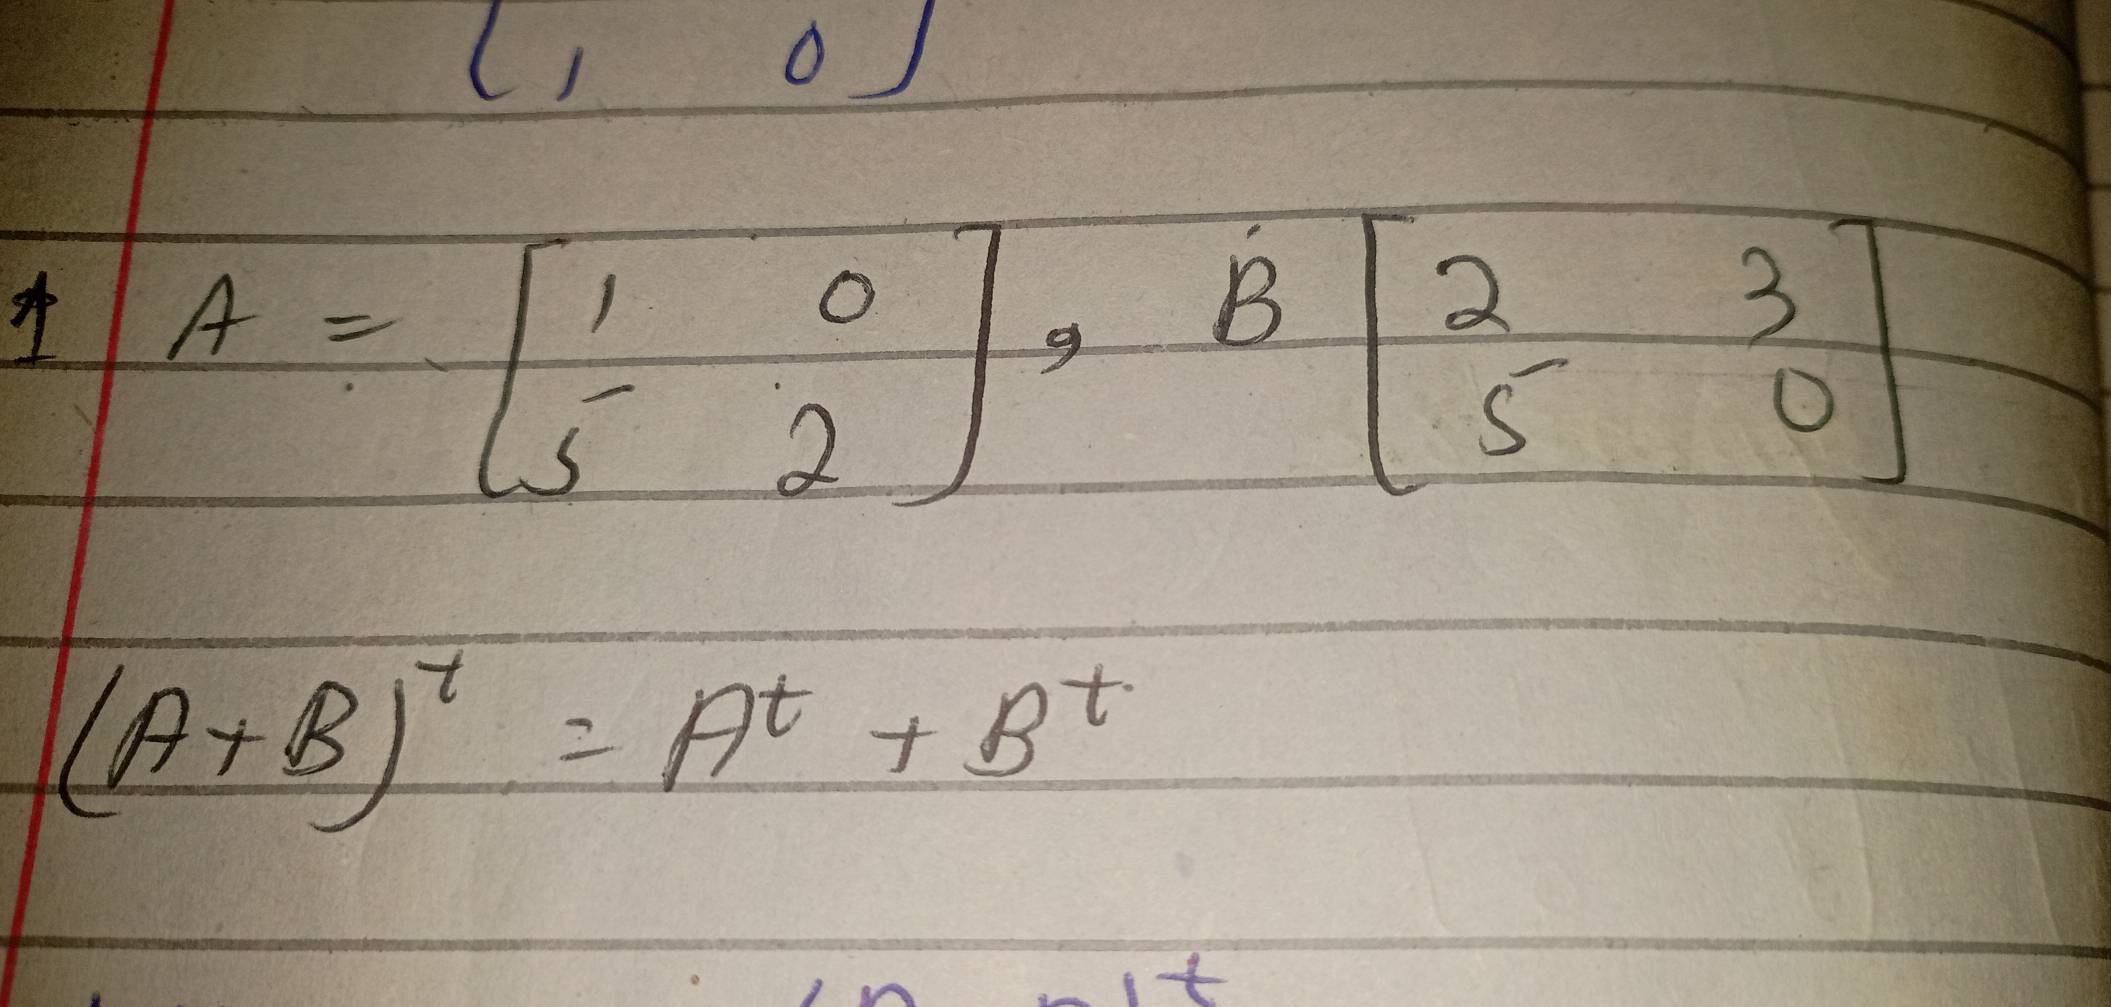 [1 0]
1 A = [1 0], B [2 3]
[5 2] [5 0]
(A+B)^t = A^t + B^t